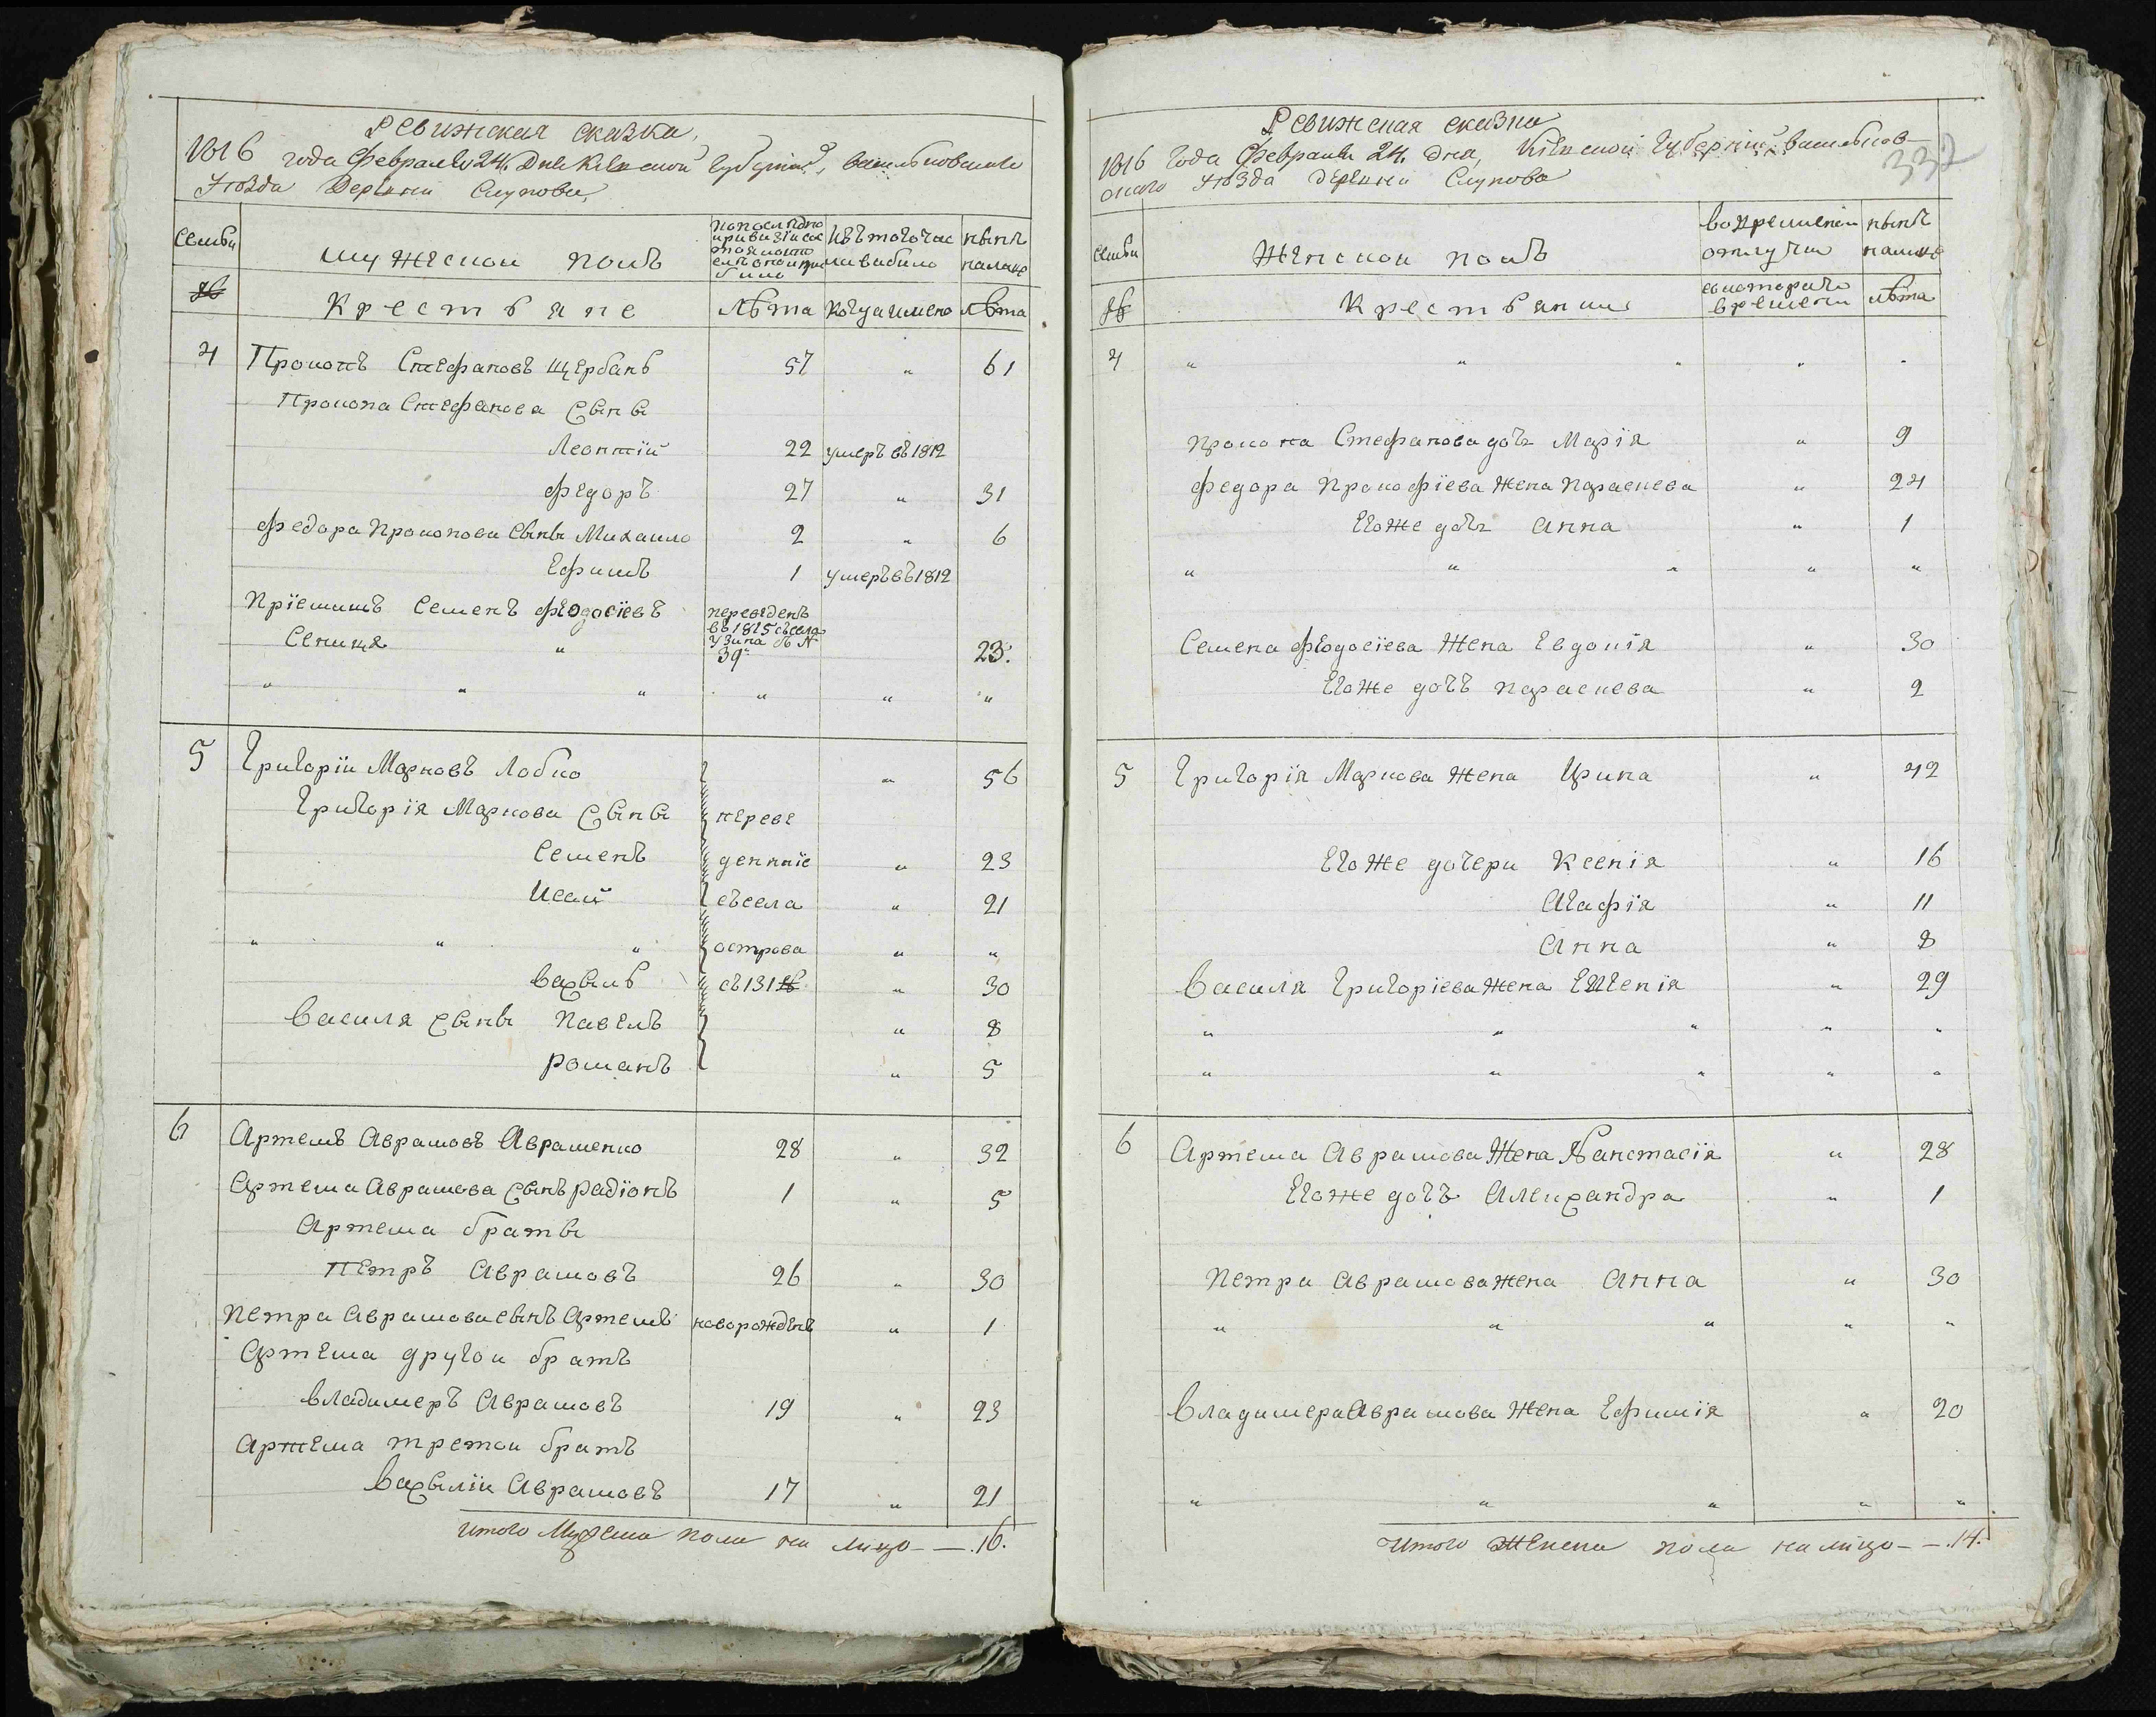 Ревижская сказка,
1816 года Февраля 24. Дня Киевской губернии, васильковскаго
уюзда Деревни Слупова,
Семьи
мужеской полъ
по последней ревизіи состояло и после оной прибыло
изъ того числа выбыло
нынѣ налицо
№
Крестьяне
лѣта
когда имено
лѣта
4 Прокопъ Стефановъ Щербань 57 „ 61
Прокопа Стефанова сыны
Леонтій 22 умеръ въ 1812
Федоръ 27 „ 31
Федора Прокопова сыны Михаило 2 „ 6
Ефимъ 1 умеръ въ 1812
Пріемышъ Семенъ Феодосіевъ
Сеница „ переведенъ
въ 1815 съ села
Узина №
39. 23.
„ „ „ „ „ „
5 Григорій Марковъ Лобко „ 56
Григорія Маркова сыны переве
Семенъ денные „ 23
Исай съ села „ 21
„ „ „ острова „ „
Василь съ 131 № „ 30
Василя сыны Павелъ „ 8
Романъ „ 5
6 Артемъ Аврамовъ Авраменко 28 „ 32
Артема Аврамова сынъ Радіонъ 1 „ 5
Артема братъи
Петръ Аврамовъ 26 „ 30
Петра Аврамова сынъ Артемъ новорожденъ „ 1
Артема другои братъ
Владимеръ Аврамовъ 19 „ 23
Артема третои братъ
Василіи Аврамовъ 17 „ 21
Итого Мужеска пола на лицо — 16.
Ревижская сказка
1816 года Февраля 24. Дня, Киевской Губерніи, васильков-
скаго уюзда деревни Слупова
337
семьи
Женской полъ
во временной отлучки
нынѣ налицо
№
Крестьянки
скотораго времени
лѣта
4 „ „ „ „ „
Прокопа Стефанова дочь Марія „ 9
Федора Прокофіева жена Параскева „ 24
Егоже дочь Анна „ 1
„ „ „ „ „
Семена Феодосіева жена Евдокія „ 30
Егоже дочъ Параскева „ 2
5 Григорія Маркова жена Ирина „ 42
Егоже дочери Ксенія „ 16
Агафія „ 11
Анна „ 8
Василя Григоріева жена Евгенія „ 29
„ „ „ „ „
„ „ „ „ „
6 Артема Аврамова жена Анастасія „ 28
Егоже дочъ Александра „ 1
Петра Аврамова жена Анна „ 30
„ „ „ „ „
Владимера Аврамова жена Ефимія „ 20
„ „ „ „ „
Итого женска пола на лицо — 14.